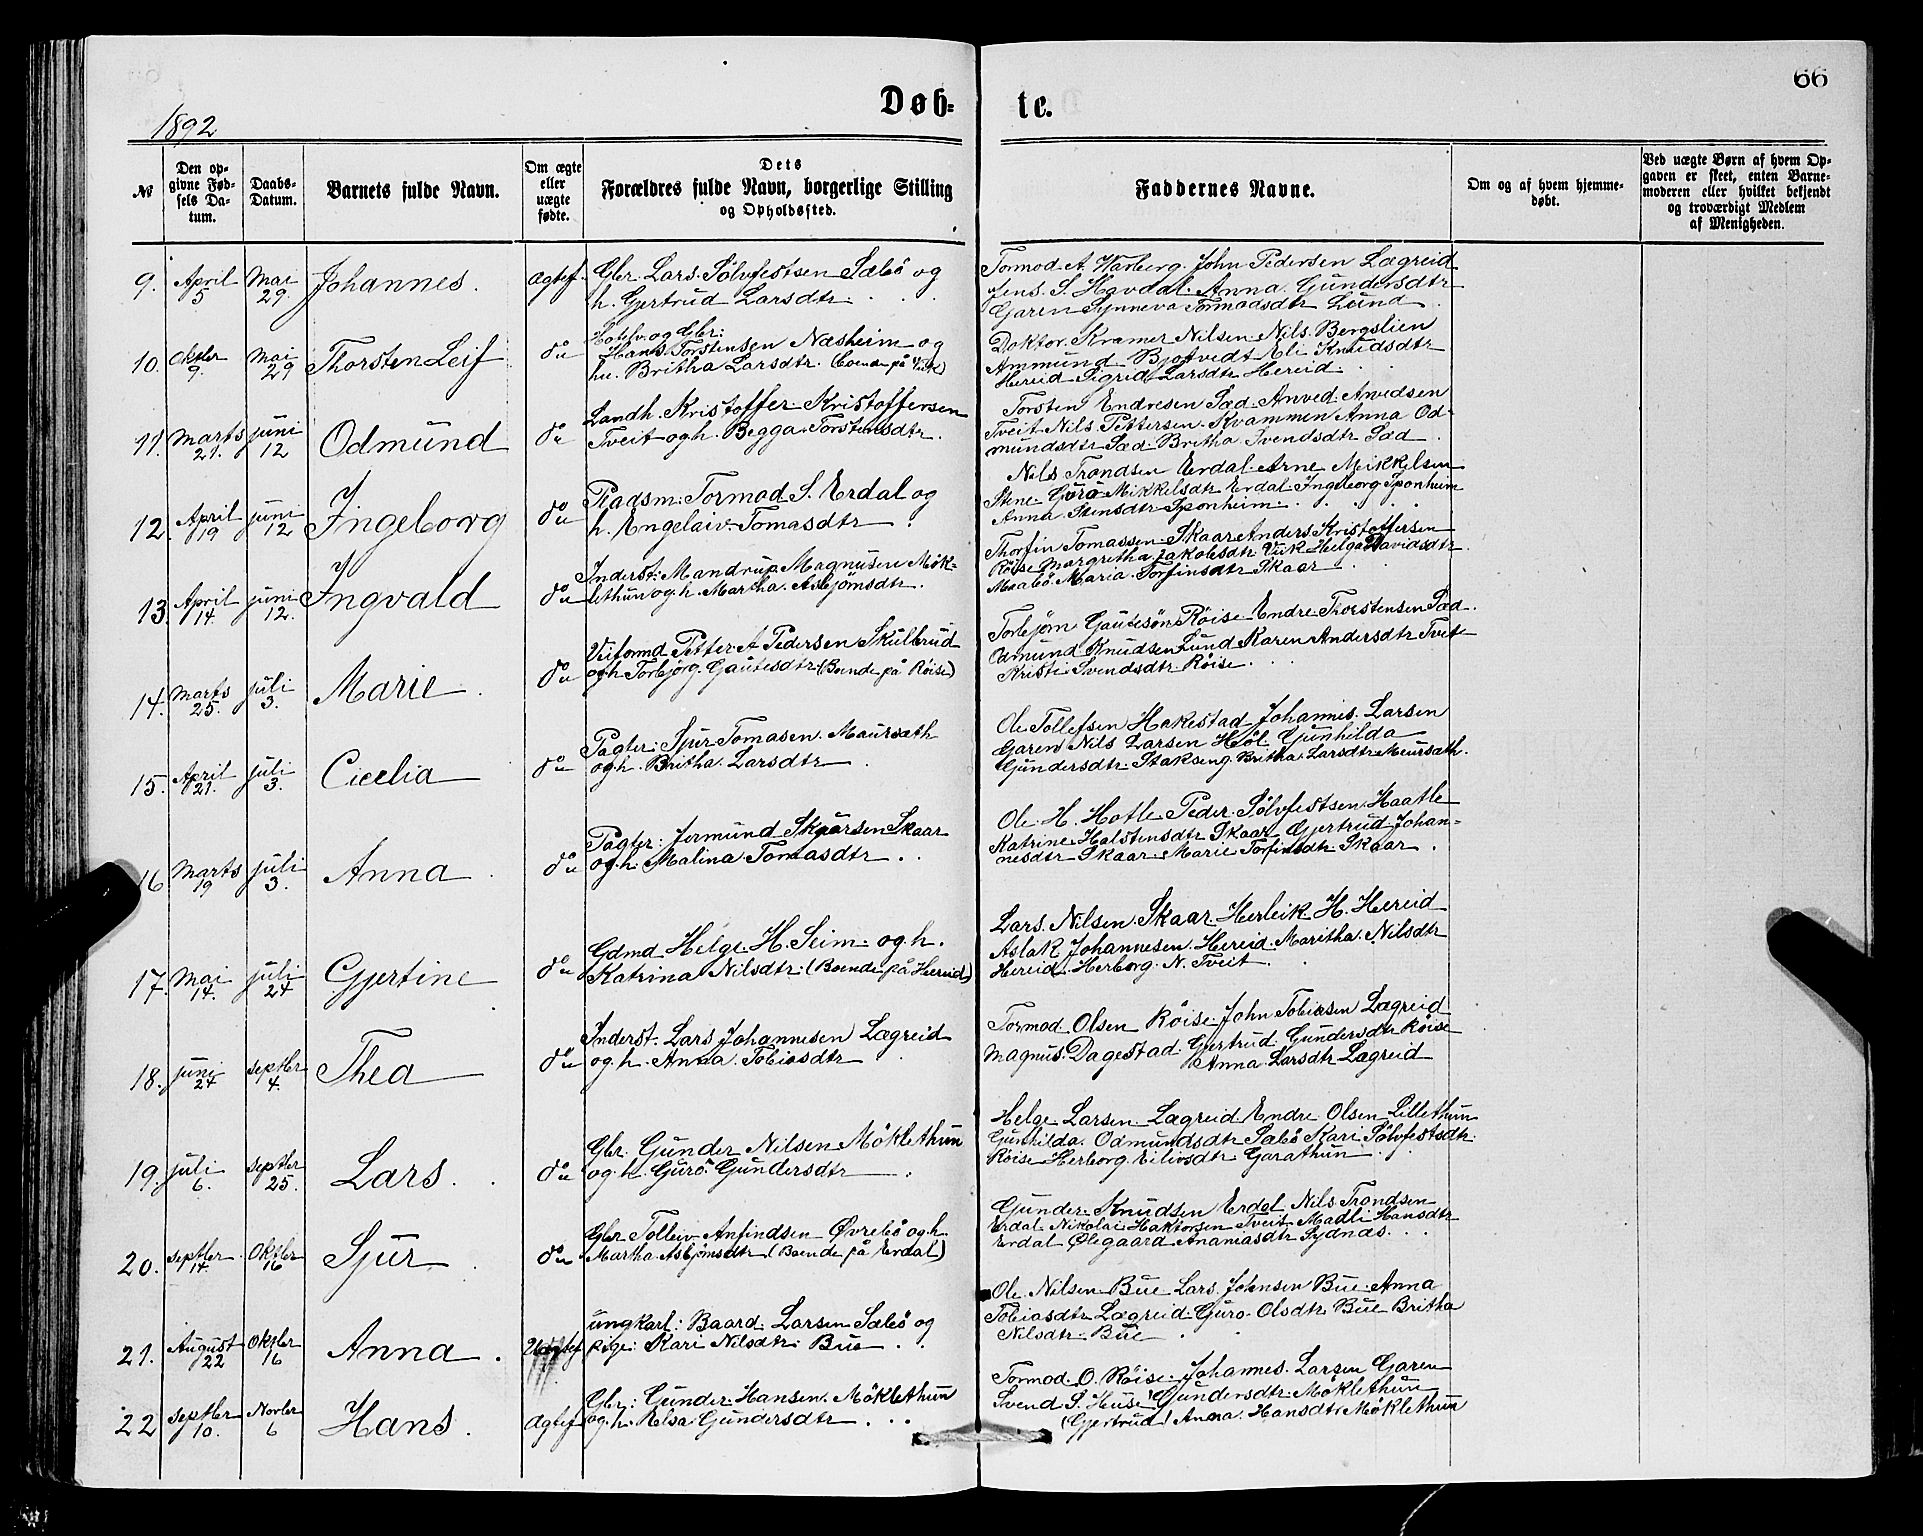 66
Døb-
te.
1892
№
Den op-
givne Fød-
sels Da-
tum.
Daabs-
Datum.
Barnets fulde Navn.
Om ægte
eller
uægte
fødte.
Dets
Forældres fulde Navn, borgerlige Stilling
og Opholdssted.
Faddernes Navne.
Om og af hvem hjemme-
døbt.
Ved uægte Børn af hvem Op-
gaven er skeet, enten Barne-
moderen eller hvilket bekjendt
og troværdigt Medlem
af Menigheden.
9.
April
5
Mai
29.
Johannes.
Ægtef.
Gbr. Lars Sølvfestsen Sæbö og
h. Gjertrud Larsdtr.
Tormod A. Warberg. John Pedersen Lægreid
Jens S. Havdal. Anna Gundersdtr
Garen Synneva Tormodsdtr Lund
10.
Oktbr
9.
Mai
29
Thorsten Leif
do
og Gbr:
Hans Torstensen Næsheim og
hu. Britha Larsdtr. (Boende på Vik)
Doktor Kramer Nilsen Nils Bergslien
Ammund Bjotvedt Eli Knudsdtr
Hereid Sigrid Larsdtr Hereid.
11.
Marts
21.
juni
12
Odmund
do
Landh. Kristoffer Kristoffersen
Tveit og h. Begga Torstensdtr.
Torsten Endresen Sæd Anved Anvedsen
Tveit Nils Pettersen Kvammen Anna Od-
mundsdtr Sæd. Britha Svendsdtr Sæd
12.
April
19
juni
12
Ingeborg
do
Pladsm: Tormod S. Erdal og
h. Engelaiv Tomasdtr
Nils Trondsen Erdal Arne Mikkelsen
Stene. Guro Mikkelsdtr Erdal Ingeborg Sponheim
Anna Stensdtr Sponheim.
13.
April
14
juni
12.
Ingvald
do
Inderst: Mandrup Magnusen Møk-
lethun og h. Martha Asbjørnsdtr.
Thorfin Tomassen Skaar Anders Kristoffersen
Röise Margretha Jakobsdtr Vik Helga Davidsdtr
Maabö. Maria Torfinsdtr Skaar
14.
Marts
25.
juli
3.
Marie
do
Veiformd Petter A Pedersen Skulbrud
og h Torbjorg. Gautesdtr (Boende på Röise)
Torbjörn Gautesön Röise. Endre Thorstensen Sæd.
Odmund Knudsen Lund Karen Andersdtr Tveit
Kristi Svendsdtr. Röise.
15.
April
21.
juli
3.
Cicelia
do
Pagter: Sjur Tomasen Maursæth
og h. Britha Larsdtr
Ole Tollefsen Hakestad Johannes Larsen
Garen Nils Larsen Høl Gunhilda
Gundersdtr. Stakseng. Britha Larsdtr Meursæth.
16
Marts
19
juli
3.
Anna
do
Pagter: Jermund Skaar
og h. Malina Tomasdtr.
Ole H. Hotle Peder Sølvfestsen Haatle
Katrine Halstensdtr Skaar Gjertrud Johan-
nesdtr Skaar Marie Torfinsdtr Skaar.
17.
Mai
14.
juli
24
Gjertine
do
Gdmd Helge H. Seim og h.
Katrina Nilsdtr: (Boende på Hereid)
Lars Nilsen Skaar Herleik H. Hereid
Aslak Johannesen Hereid Maritha Nilsdtr
Hereid Herborg N. Tveit
18.
juni
24
Septbr
4.
Thea
do
Inderst. Lars Johannesen Lægreid
og h. Anna Tobiasdtr
Tormod Olsen Röise. John Tobiasen Lægreid
Magnus Dagestad Gertrud Gundersdtr Röise
Anna Larsdtr Lægreid
19.
juli
6.
Septbr
25.
Lars.
do
Gbr. Gunder Nilsen Möklethun
og h. Guro Gundersdtr
Helge Larsen Lægreid Endre Olsen Lillethun
Gunhilda Odmundsdtr Sæbö Kari Sølvfestsdtr.
Röise Herborg Eilivsdtr Garathun
20.
Septbr
14.
Oktbr
16
Sjur
do
Gbr Tolleiv Anfindsen Øvrebö og h.
Martha Asbjørnsdtr (Boende på Erdal)
Gunder Knudsen Erdal Nils Trondsen
Erdal Nikolai Haktorsen Tveit Madli Hansdtr
Erdal Ølegaard Ananiasdtr Sydnes.
21.
August
22
Oktbr
16
Anna.
Uægtef
ungkarl: Baard Larsen Sæbö og
pige: Kari Nilsdtr Bue
Ole Nilsen Bue Lars Johnsen Bue Anna
Tobiasdtr Lægreid Guro Olsdtr Bue Britha
Nilsdtr Bue
22
Septbr
10.
Novbr
6
Hans.
Ægtef
Gbr: Gunder Hansen Möklethun
og h. Aelsa Gundersdtr.
Tormod O. Röise. Johannes Larsen Garen
Svend S. Huse Gundersdtr Möklethun
(Gjertrud) Anna Hansdtr Möklethun